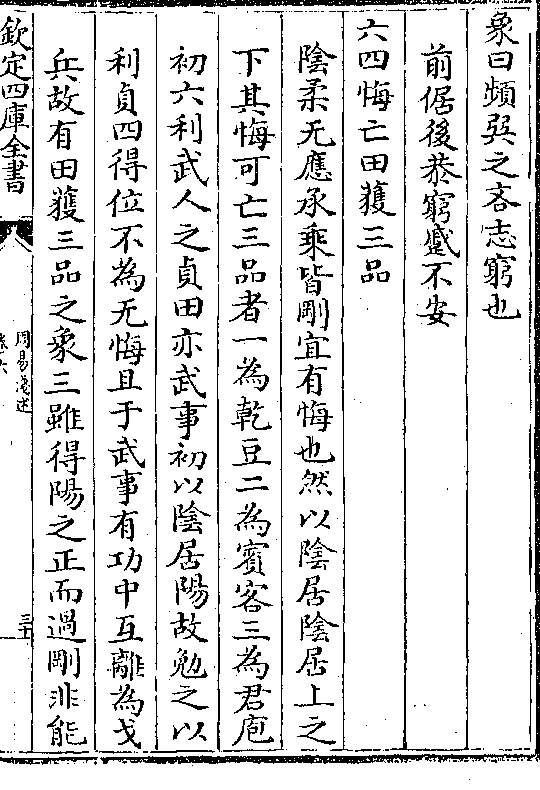 象曰頻巽之吝志窮也
前倨後恭窮蹙不安
六四悔亡田獲三品
陰柔无應承乘皆剛宜有悔也然以陰居陰居上之
下其悔可亡三品者一為乾豆二為賓客三為君庖
初六利武人之貞田亦武事初以陰居陽故勉之以
利貞四得位不為无悔且于武事有功中互離為戈
兵故有田獲三品之象三雖得陽之正而過剛非能
欽定四庫全書
周易淺述
卷六
三十